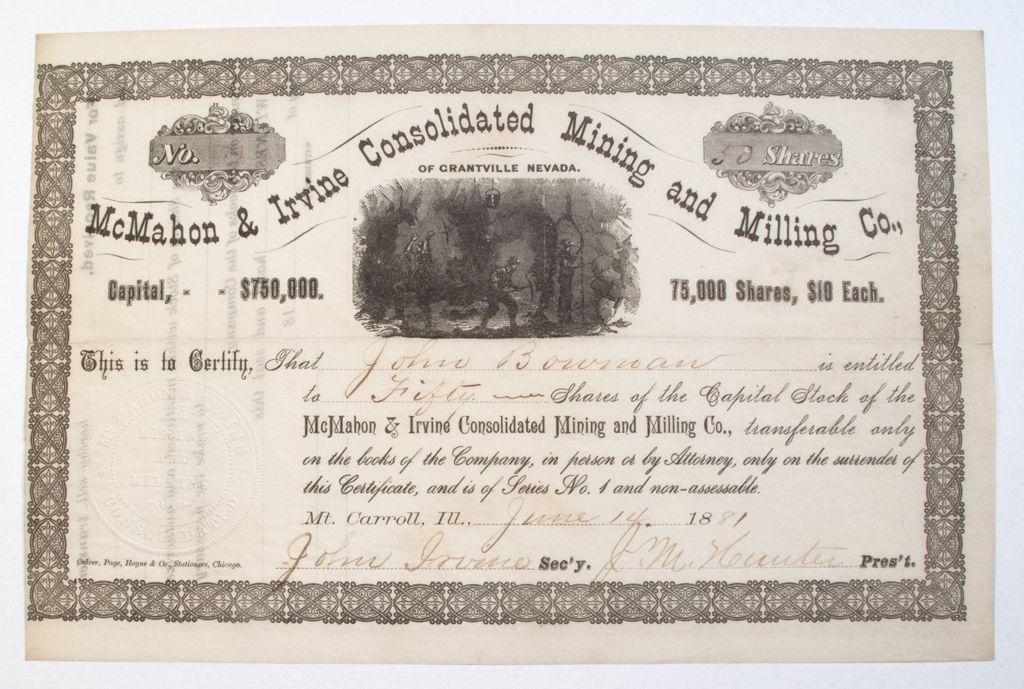 No.
50 Shares
McMahon & Irvine Consolidated Mining and Milling Co.,
OF GRANTVILLE NEVADA.
Capital, - - $750,000.
75,000 Shares, $10 Each.
This is to Certify, That John Bowman is entitled
to Fifty Shares of the Capital Stock of the
McMahon & Irvine Consolidated Mining and Milling Co., transferable only
on the books of the Company, in person or by Attorney, only on the surrender of
this Certificate, and is of Series No. 1 and non-assessable.
Mt. Carroll, Ill., June 14. 1881
John Irvine Sec'y. J. M. Hunter Pres't.
Culver, Page, Hoyne & Co., Stationers, Chicago.